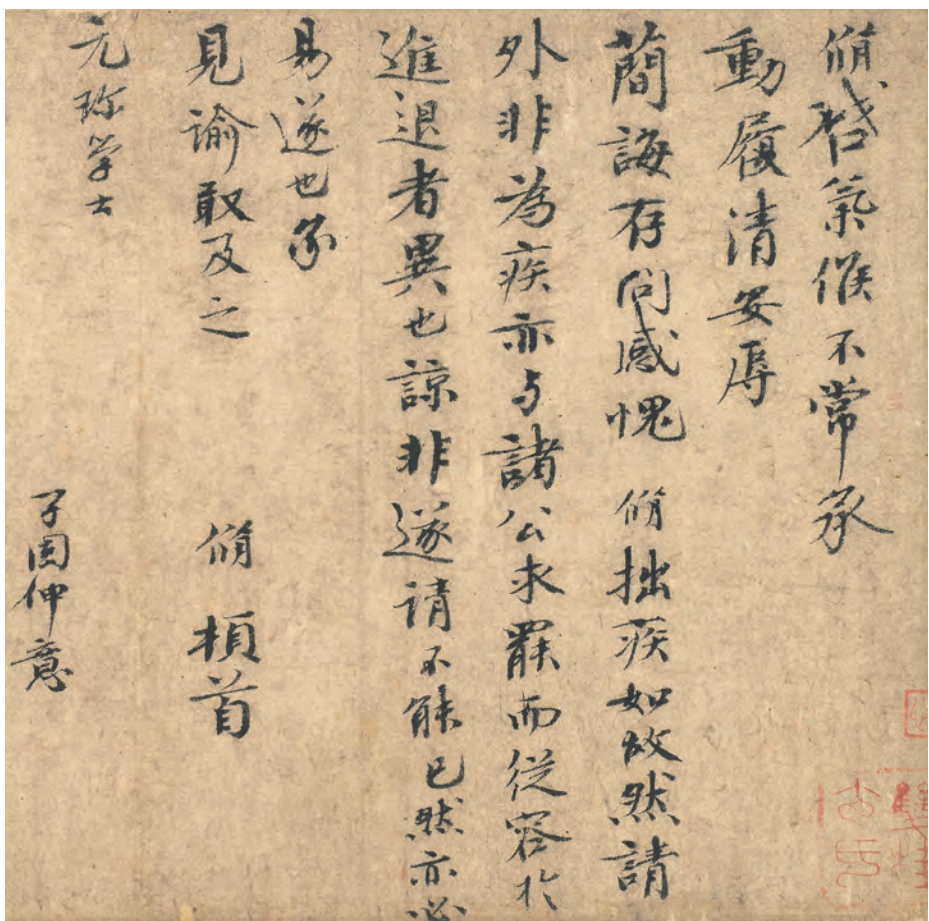 脩啓氣候不常承
動履清安辱
簡誨存問感愧 脩拙疾如故然請
外非為疾亦与諸公求罷而從容於
進退者異也諒非遂請不能已然亦必
易遂也承
見諭敢及之 脩頓首
元珍學士
子固仲意